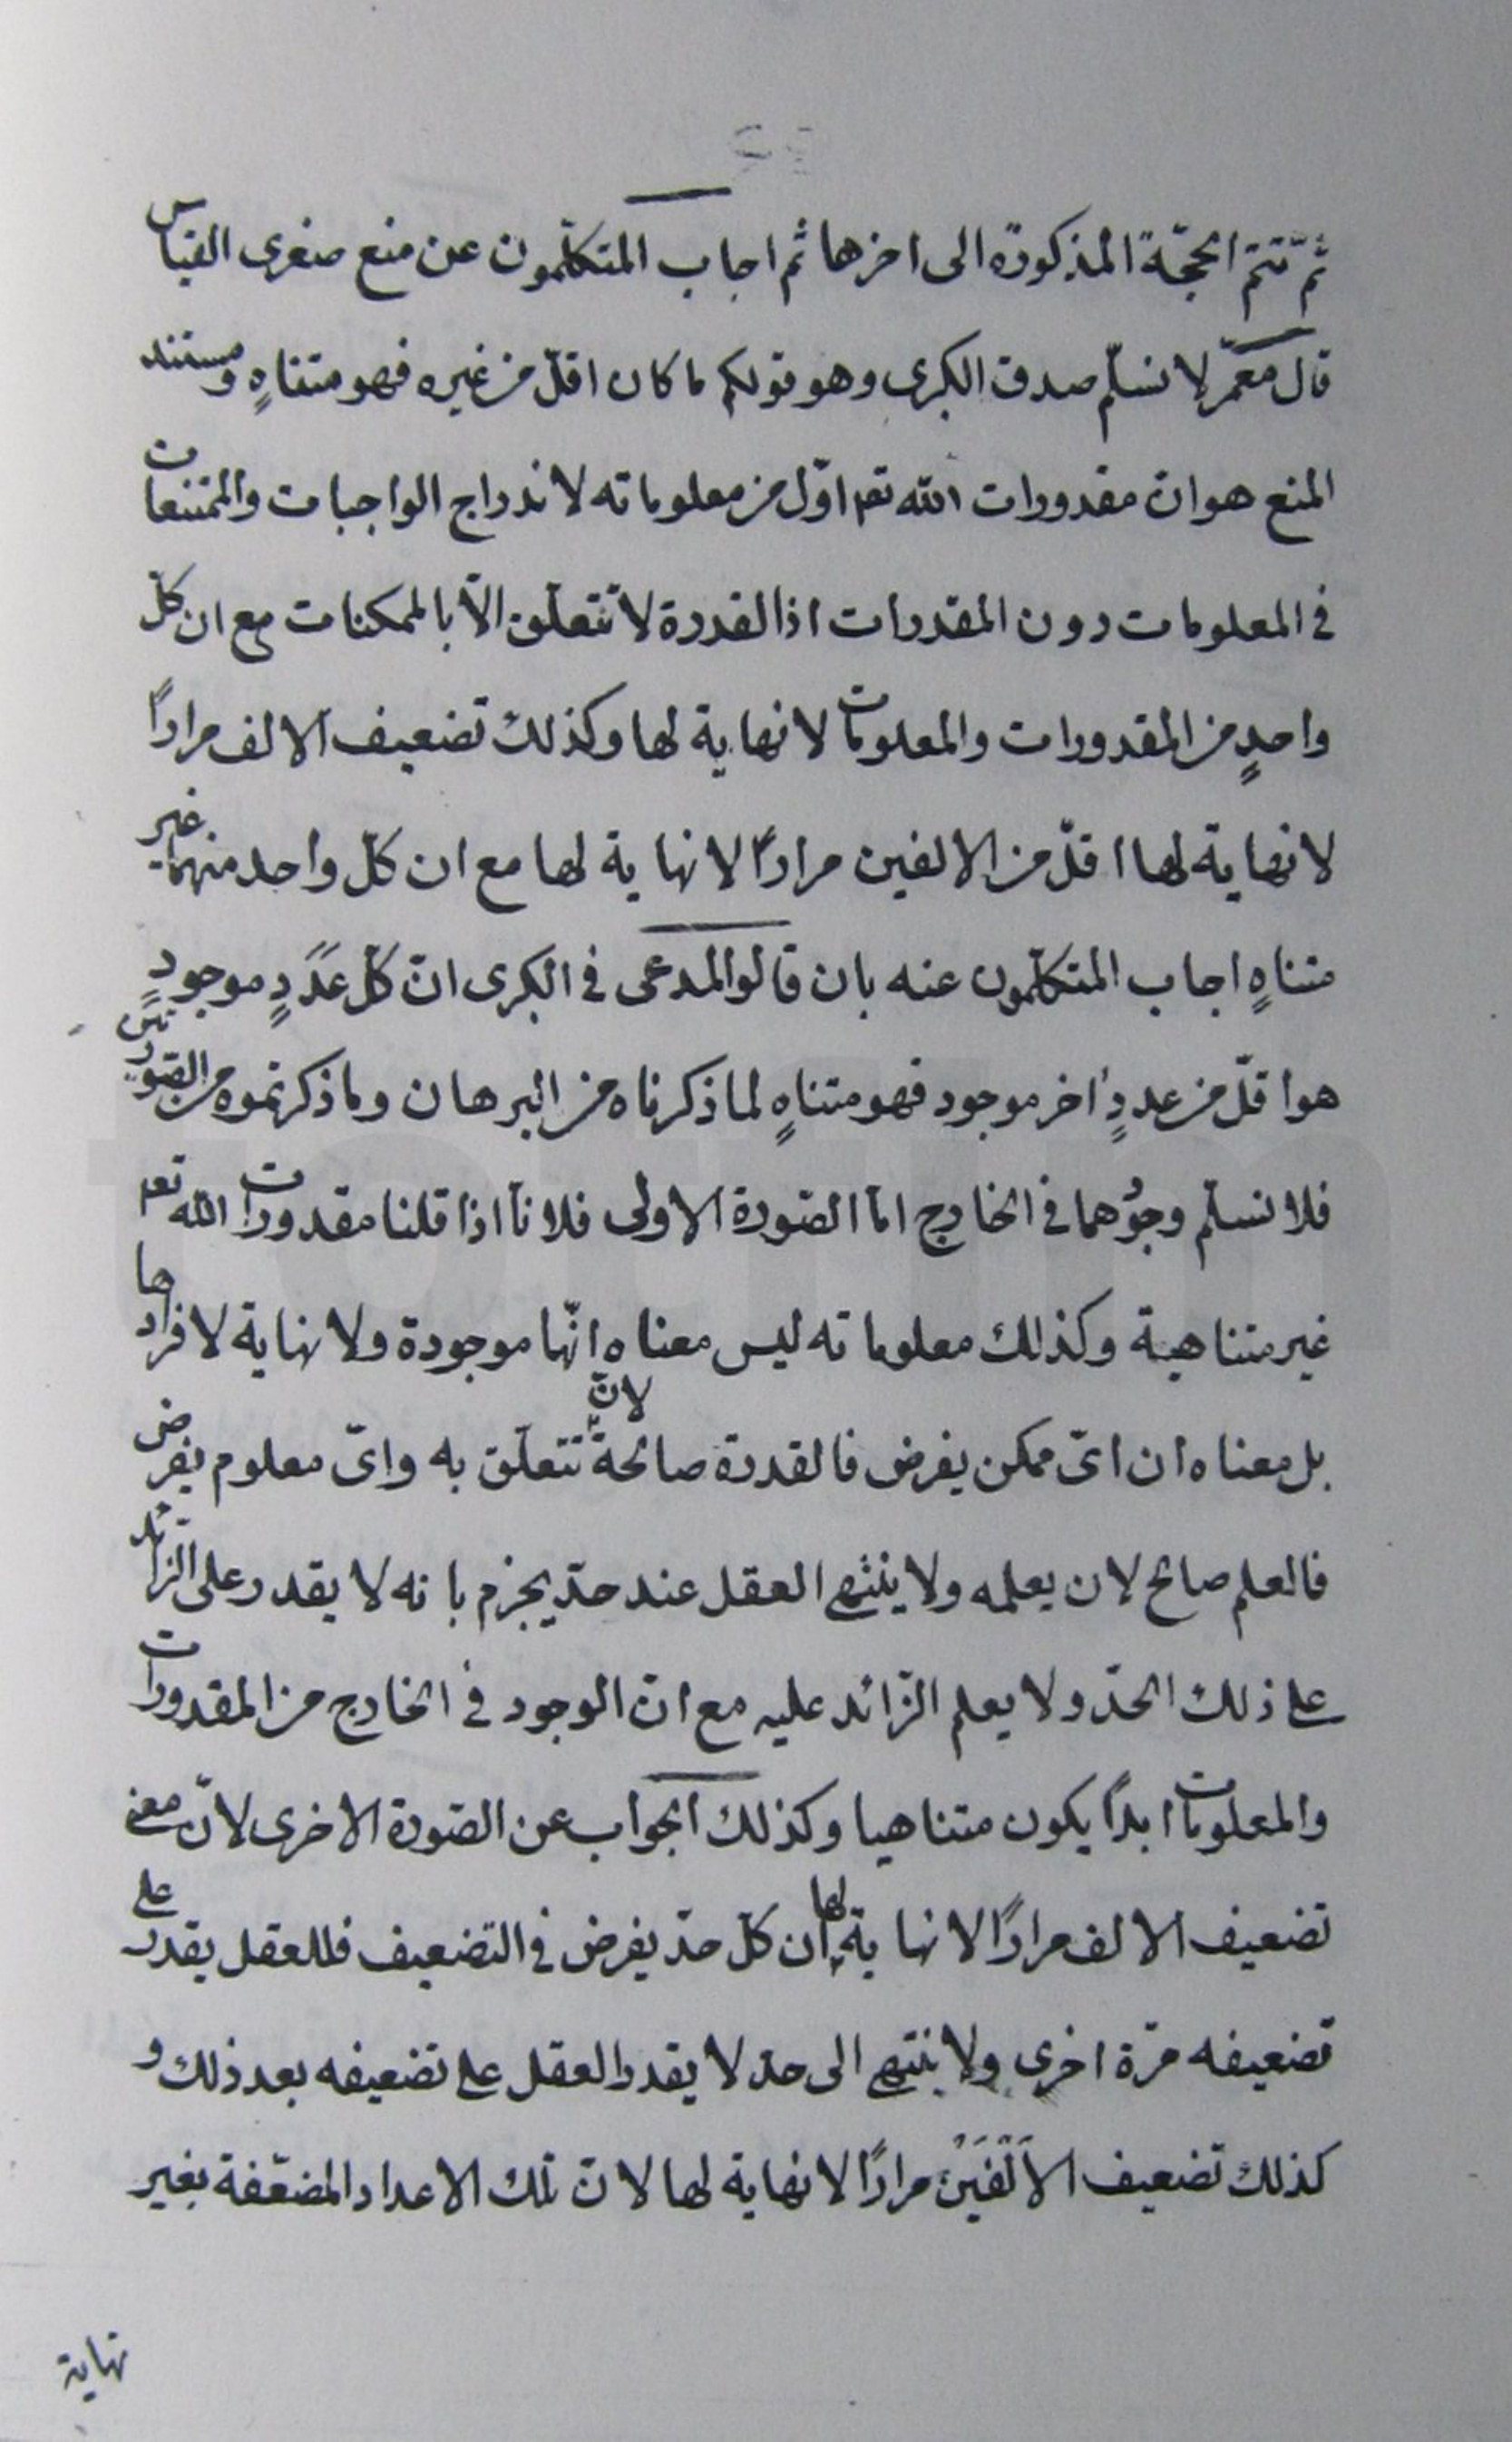 ثمّ تتمّ الحجّة المذكورة الى اخرها ثم اجاب المتكلّمون عن منع صغرى القياس
قال معمّر لا نسلّم صدق الكبرى وهو قولكم ما كان اقلّ من غيره فهو متناهٍ ومستند
المنع هو انّ مقدورات الله تعم اوّل من معلوماته لاندراج الواجبات والممتنعات
فى المعلومات دون المقدرات اذ القدرة لا تتعلّق الّا بالممكنات مع ان كلّ
واحدٍ من المقدورات والمعلومات لا نهاية لها وكذلك تضعيف الالف مرارًا
لا نهاية لها اقلّ من الالفين مرارًا لا نهاية لها مع ان كلّ واحد منهما غير
متناهٍ اجاب المتكلّمون عنه بان قالو المدعى فى الكبرى انّ كلّ عَدَدٍ موجودٍ
هو اقلّ من عددٍ اخر موجود فهو متناهٍ لما ذكرناه من البرهان وما ذكرتموه من الصّورتين
فلا نسلّم وجودهما فى الخارج امّا الصّورة الاولى فلانّا اذا قلنا مقدورات الله تعم
غير متناهية وكذلك معلوماته ليس معناه انّها موجودة ولا نهاية لافرادها
بل معناه ان اىّ ممكن يفرض فالقدرة صالحةٌ لانّ تتعلّق به واىّ معلوم يفرض
فالعلم صالح لان يعلمه ولا ينتهى العقل عند حدّ يجزم بانه لا يقدر على الزائد
على ذلك الحدّ ولا يعلم الزّائد عليه مع انّ الوجود فى الخارج من المقدورات
والمعلومات ابدًا يكون متناهيا وكذلك الجواب عن الصّورة الاخرى لانّ معنى
تضعيف الالف مرارًا لا نهاية لها ان كلّ حدّ يفرض فى التضعيف فللعقل يقدر على
تضعيفه مرّة اخرى ولا ينتهى الى حدّ لا يقدر العقل على تضعيفه بعد ذلك و
كذلك تضعيف الاَلْفَيْن مرارًا لا نهاية لها لانّ تلك الاعداد المضعّفة بغير
نهاية